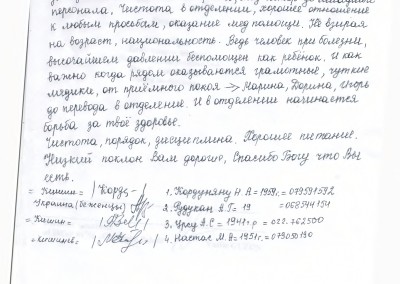 персонала, Чистота в отделении, хорошее отношение
к любым просьбам, оказание мед помощи. Не взирая
на возраст, национальность. Ведь человек при болезни,
высочайшем давлении беспомощен как ребёнок. И как
важно когда рядом оказываются грамотные, чуткие
медики, от приёмного покоя → Марина, Дорина, Игорь
до перевода в отделение. И в отделении начинается
борьба за твоё здоровье.
Чистота, порядок, дисциплина. Хорошее питание.
Низкий поклон Вам дорогие, Спасибо Богу что Вы
есть.
= Кишинэу = 1. Кордуняну Н.А = 1959г. = 079591592
Украина (беженцы) 2. А.Г = 19 = 068544154
= Кишин = 3. Урсу А.С = 1941г.р = 022.762500
= Кишинев = 4. Настас М.Д = 1951г. = 079050190